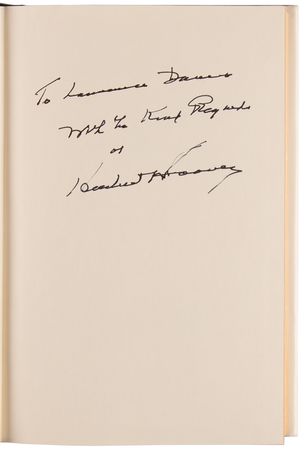 To Lawrence Davis
With the Kind Regards
of
Herbert Hoover